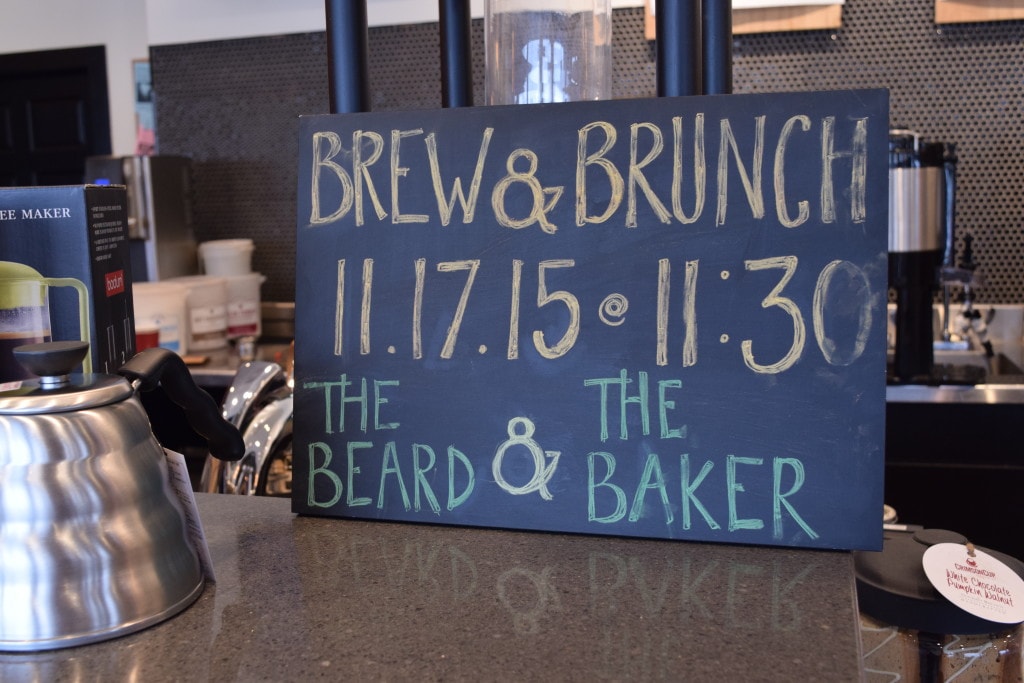 BREW & BRUNCH
11.17.15 @ 11:30
THE BEARD & THE BAKER
EE MAKER
bodum
CRIMSON CUP
White Chocolate
Pumpkin Walnut